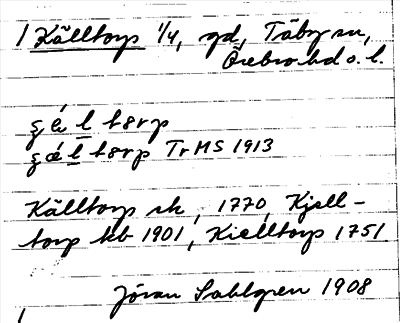 Källtorp 1/4, gd, Täby sn,
Örebro hd o. l.
t8rp
t8rp Tr MS 1913
Källtorp sk, 1770, Kjell-
torp kb 1901, Kielltorp 1751
Jöran Sahlgren 1908